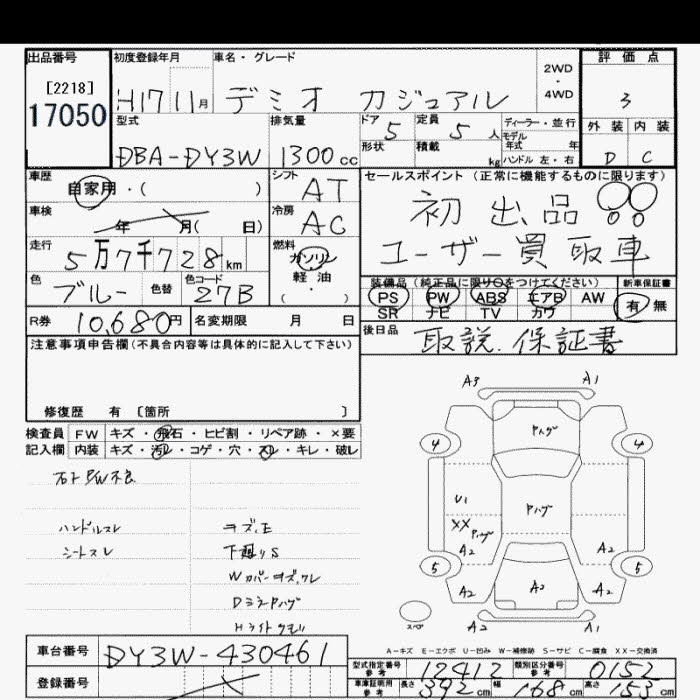 出品番号 初度登録年月 車名・グレード 2WD・4WD 評価点
[2218]
17050 H17 11月 デミオ カジュアル 3
型式 排気量 ドア 5 定員 5人 ディーラー・並行 外装 内装
モデル年式 年
DBA-DY3W 1300cc 形状 積載 kg ハンドル 左・右 D C
車歴 シフト セールスポイント(正常に機能するものに限ります)
自家用・( ) AT 初出品
車検 冷房
年 月( 日) AC ユーザー買取車
走行 燃料
5万7千728km ガソリン
軽・油
( )
色 色替 色コード
ブルー 27B
装備品(純正品に限り○をつけてください) 新車保証書
PS PW ABS エアB AW 有・無
SR ナビ TV カワ
R券 10,680円 名変期限 月 日 後日品 取説、保証書
注意事項申告欄(不具合内容等は具体的に記入して下さい)
修復歴 有 [箇所 ]
検査員 FW キズ・飛石・ヒビ割・リペア跡・×要
記入欄 内装 キズ・汚レ・コゲ・穴・スレ・キレ・破レ
右トP/W不良
ハンドルスレ
シートスレ
下廻りS
Dミラーハゲ
Hライトクモリ
A3 A1
4 ハゲ 4
U1 ハゲ
XX ハゲ
A2 A2
5 5
A2 A2 A2
スペア A2 A1
A-キズ E-エクボ U-凹み W-補修跡 S-サビ C-腐食 XX-交換済
車台番号 DY3W-430461
型式指定番号 参考 12412 類別区分番号 参考 0152
登録番号
車庫証明用 参考 長さ 392cm 幅 168cm 高さ 153cm